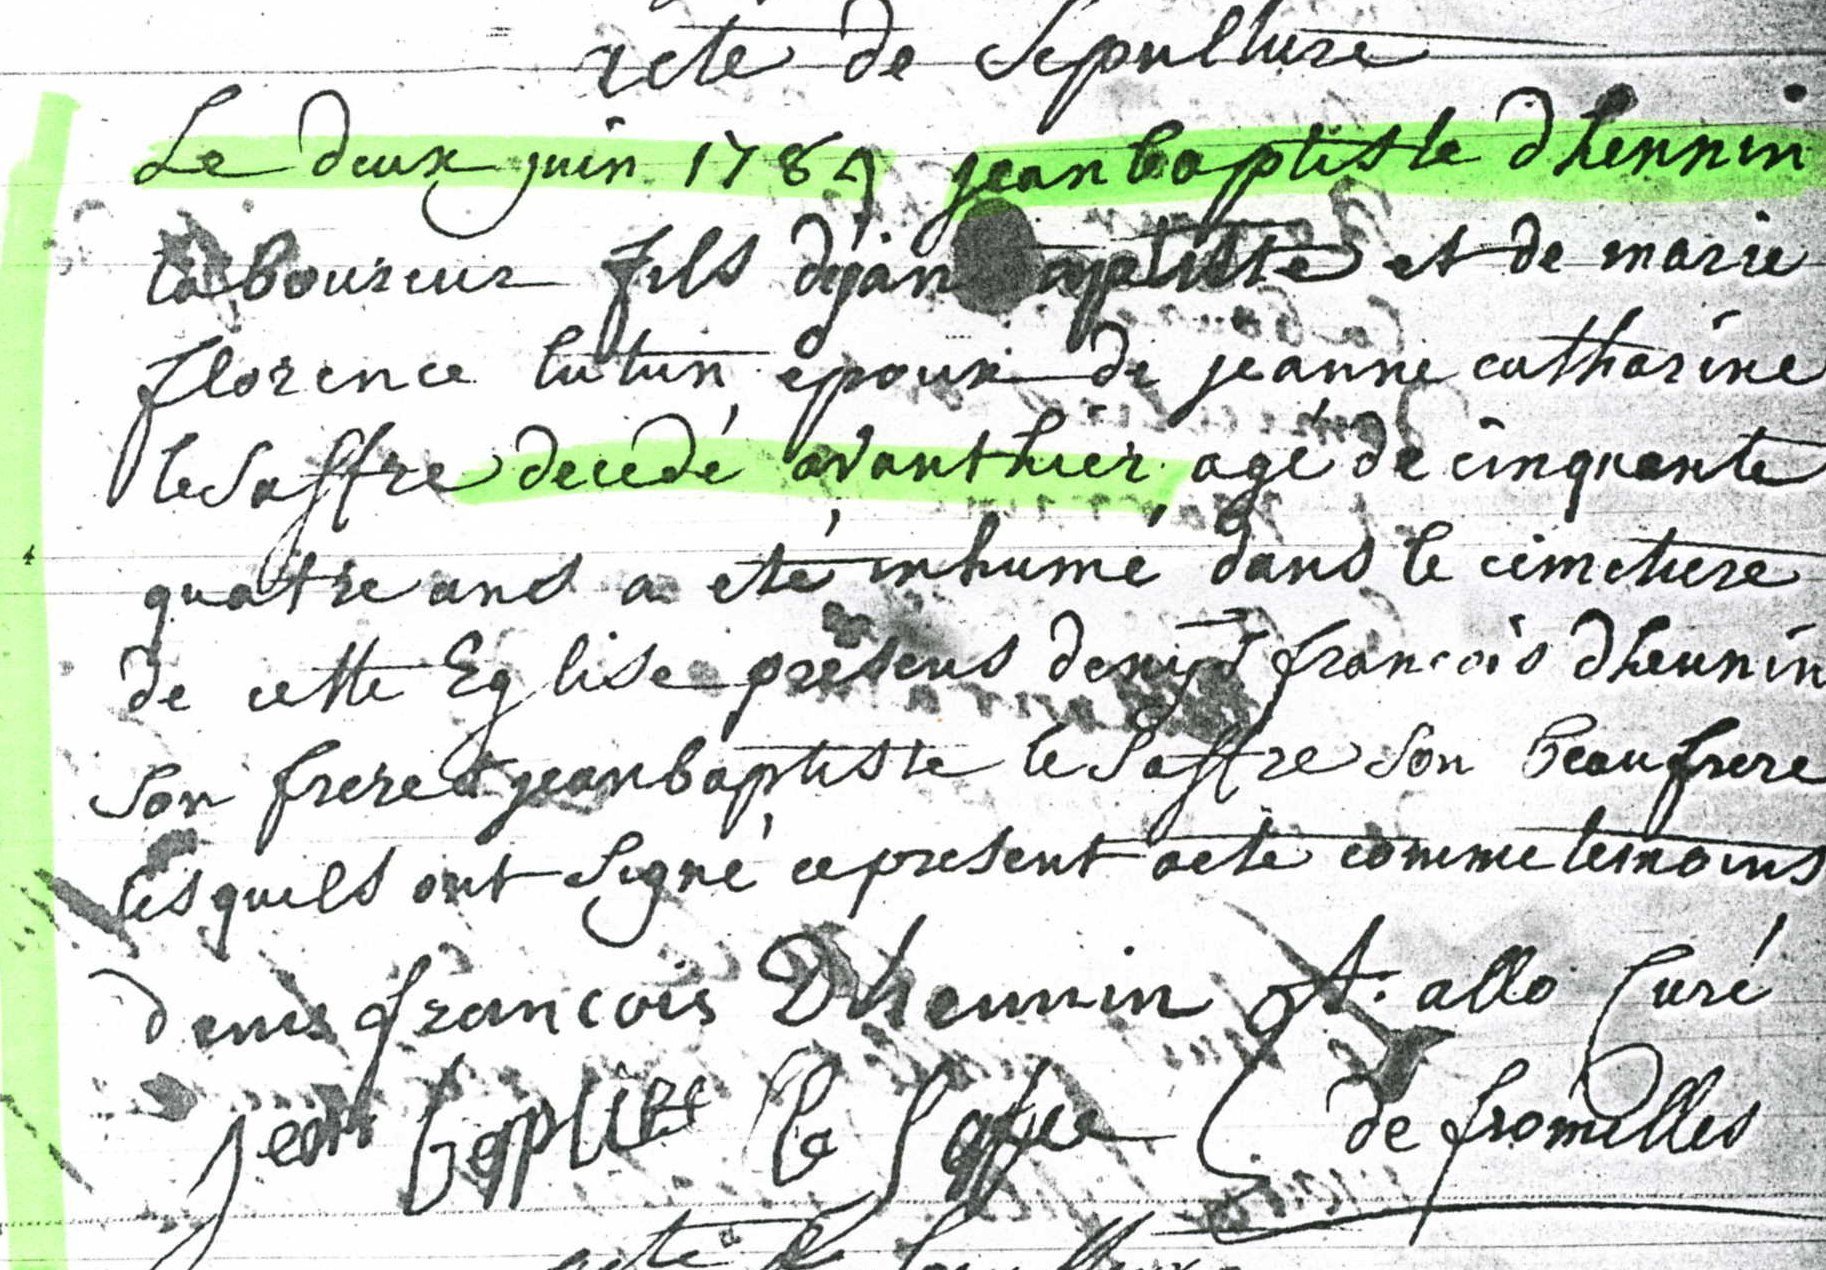 acte de Sepulture
Le deux juin 1789 jean baptiste dhennin
laboureur fils dejan baptiste et de marie
florence lutun epoux de jeanne catharine
le Saffre decedé avanthier agé de cinquante
quatre ans a eté inhumé dans le cimetiere
de cette Eglise presens denis françois dhennin
son frere et jean baptiste le Saffre son beaufrere
lesquels ont signé ce present acte comme temoins
denis francois Dhennin A. allo Curé
Jean baptiste le Saffre de fromelles
acte de